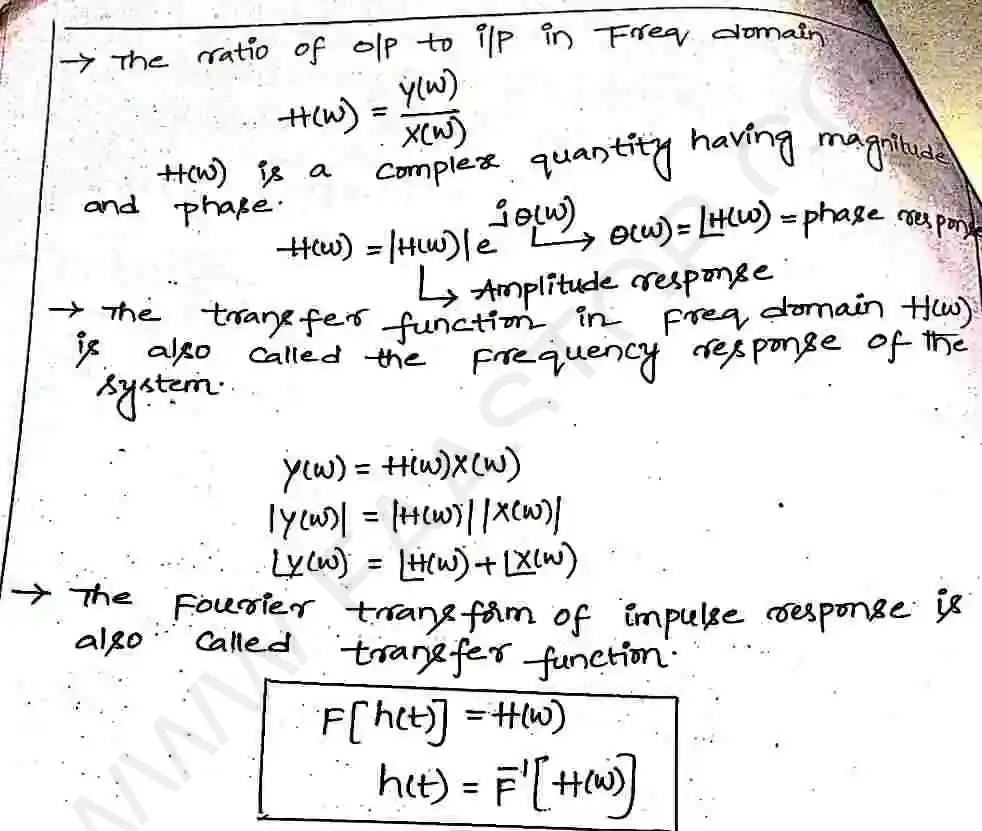 → The ratio of o/p to i/p in Freq domain
H(w) = Y(w)/X(w)
H(w) is a complex quantity having magnitude
and phase.
H(w) = |H(w)| e^jθ(w) → θ(w) = ∠H(w) = phase response
→ Amplitude response
→ The transfer function in Freq domain H(w)
is also called the Frequency response of the
system.
Y(w) = H(w)X(w)
|Y(w)| = |H(w)| |X(w)|
∠Y(w) = ∠H(w) + ∠X(w)
→ The Fourier transform of impulse response is
also called transfer function.
F[h(t)] = H(w)
h(t) = F⁻¹[H(w)]